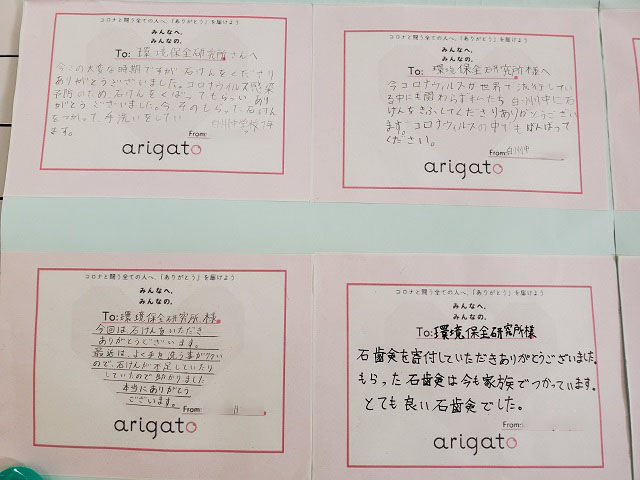 コロナと闘う全ての人へ、「ありがとう」を届けよう
みんなへ。
みんなの。
To: 環境保全研究所さんへ
今この大変な時期ですが石けんをくださり
ありがとうございました。コロナウイルス感染
予防のため、石けんをくばってもらい、あり
がとうございました。今、そのもらって、石けん
をつかって、手洗いをしてい
ます。
白川中学校
From:
arigato
コロナと闘う全ての人へ、「ありがとう」を届けよう
みんなへ。
みんなの。
To: 環境保全研究所様へ
今コロナウィルスが世界で
る中にも関わらず
白川中に石
けんをきふしてくださりありがとうござい
ます。コロナウィルスの中でもがんばって
ください。
From: 白川中
arigato
コロナと闘う全ての人へ、「ありがとう」を届けよう
みんなへ。
みんなの。
To: 環境保全研究所様
今回は、石けんをいただき
ありがとうございます。
最近は、よく手を洗う事が多い
ので、石けんが不足していたり
していたので助かりました
本当にありがとう
ございます。
From:
arigato
コロナと闘う全ての人へ、「ありがとう」を届けよう
みんなへ。
みんなの。
To: 環境保全研究所様
石歯食を寄付していただきありがとうございました。
もらった石歯食は今も家族でつかっています。
とても良い石歯食でした。
From:
arigato